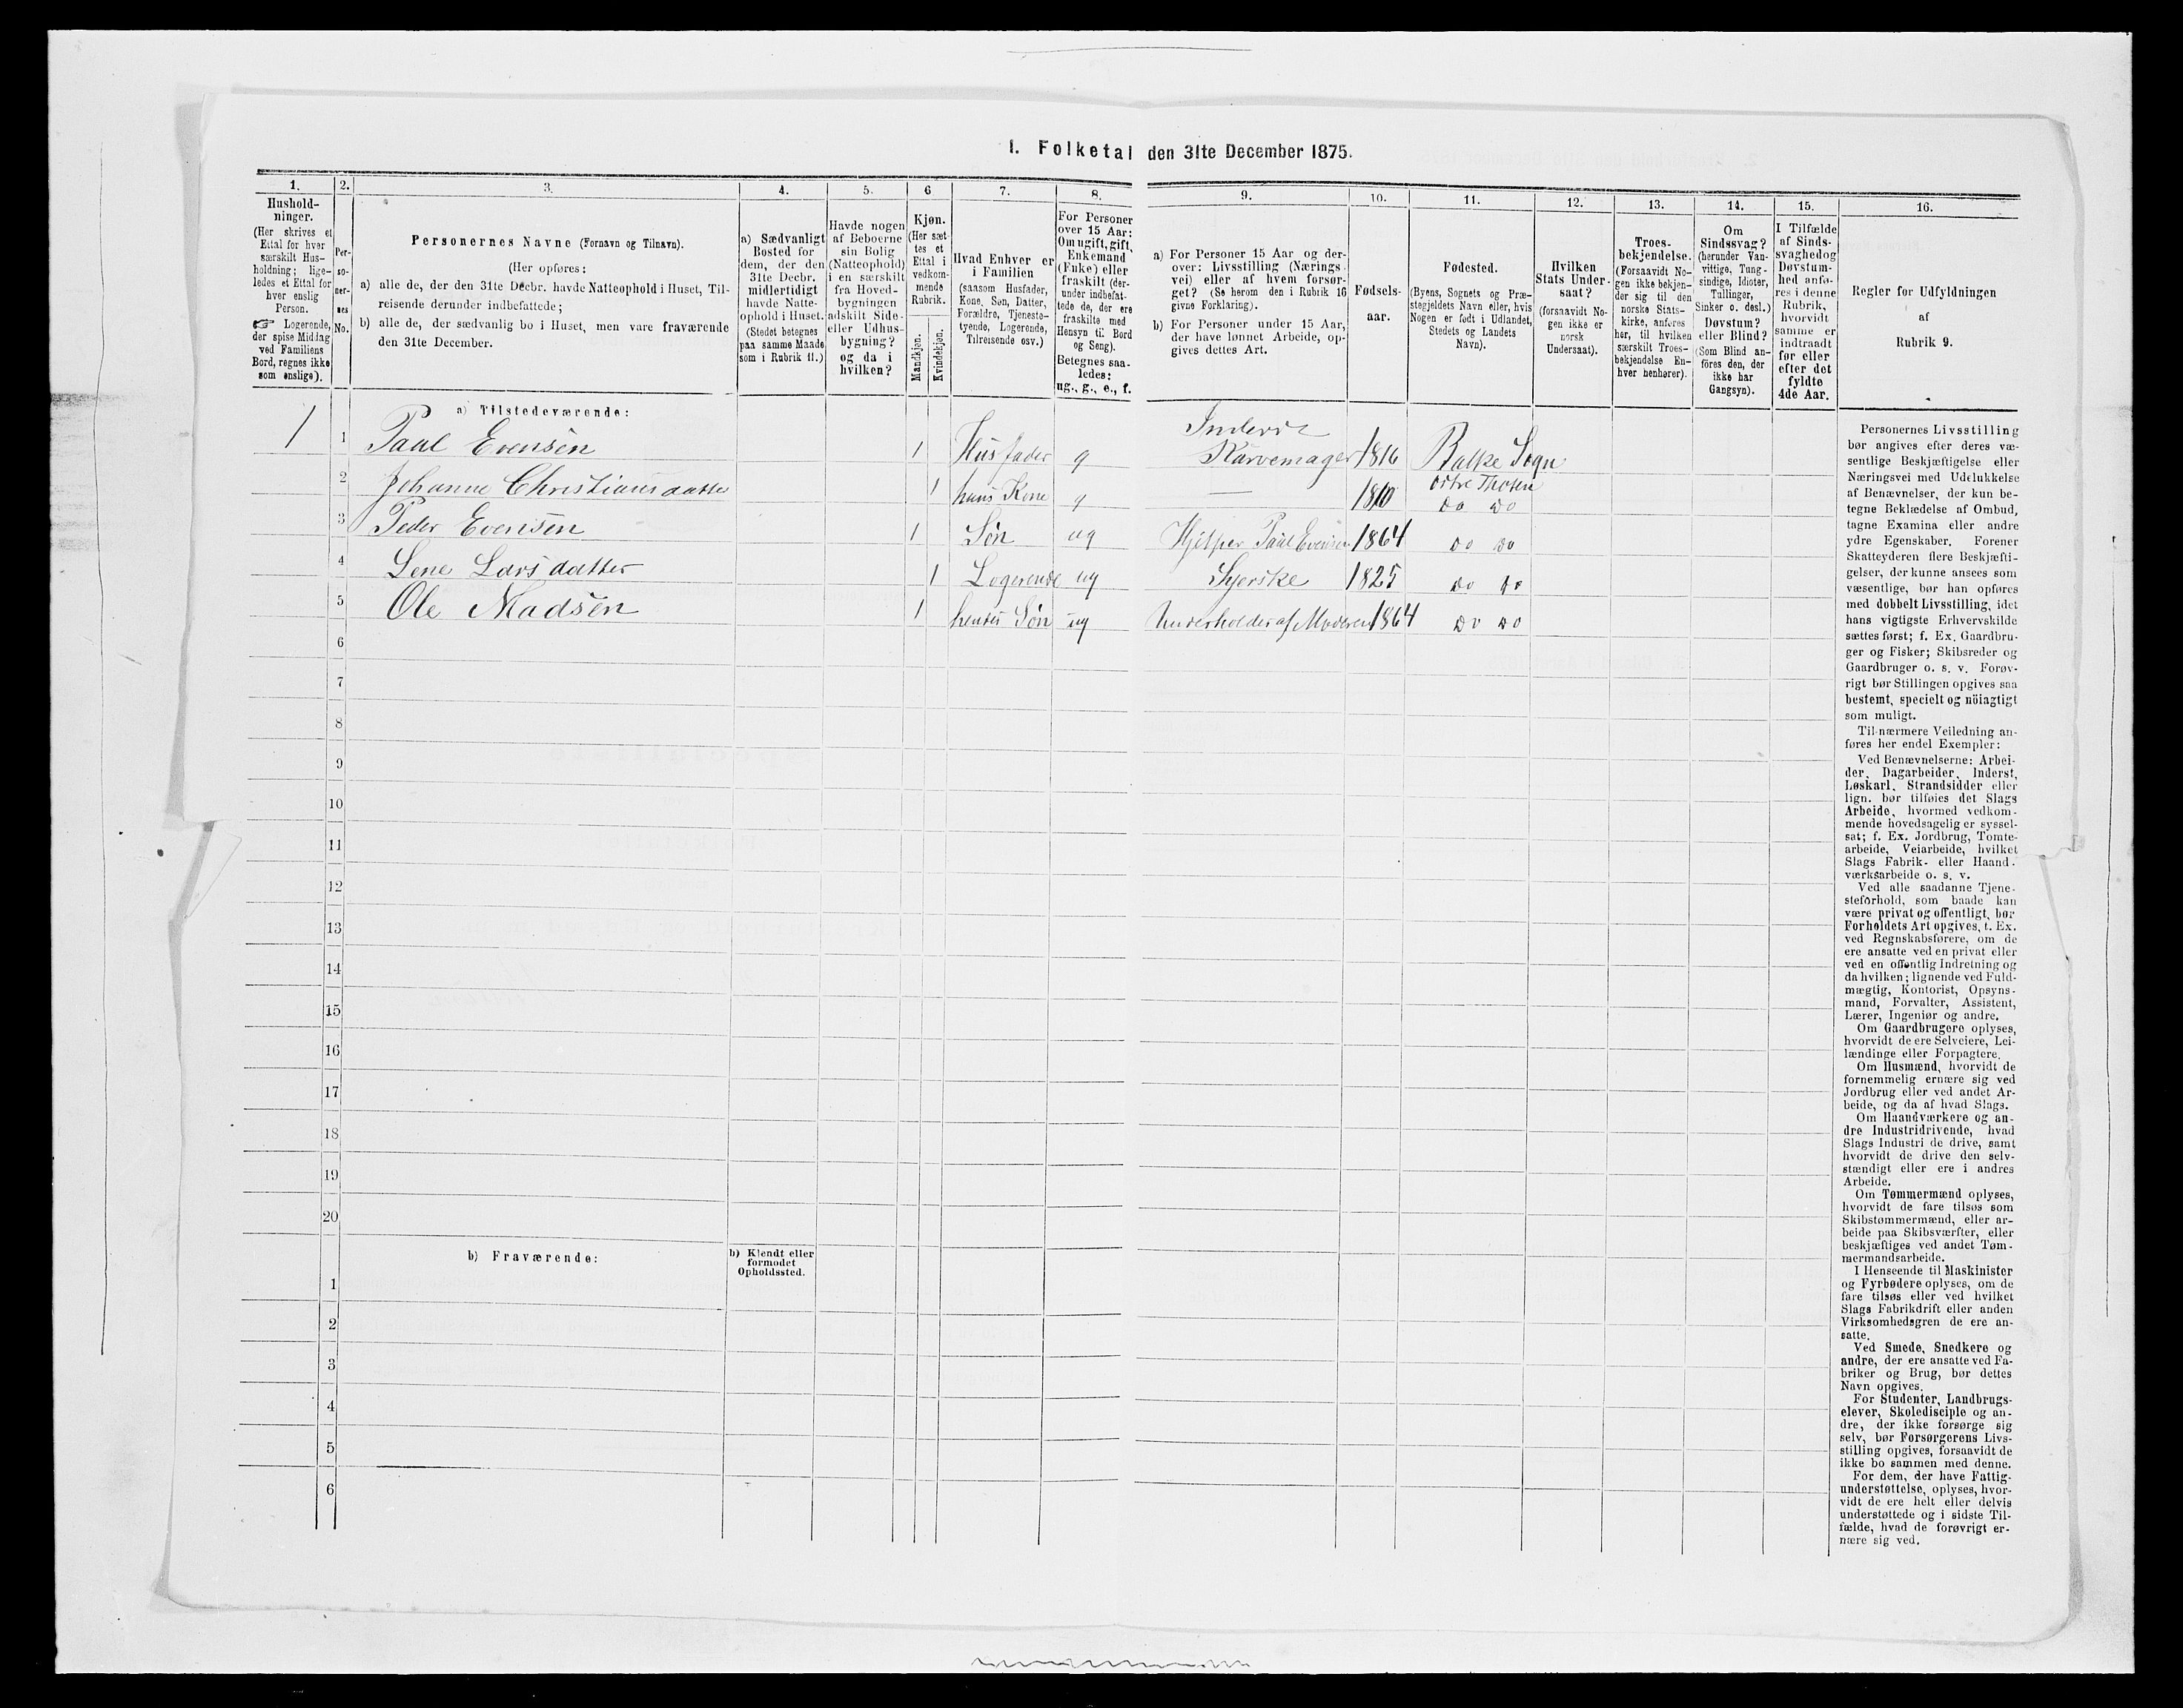 I. Folketal den 31te December 1875.
1.
Hushold-
ninger.
(Her skrives et
Ettal for hver
særskilt Hus-
holdning; lige-
ledes et Ettal for
hver enslig
Person.
☞ Logerende,
der spise Middag
ved Familiens
Bord, regnes ikke
som enslige).
2.
Per-
so-
ner-
nes
No.
3.
Personernes Navne (Fornavn og Tilnavn).
(Her opføres:
a) alle de, der den 31te Decbr. havde Natteophold i Huset, Til-
reisende derunder indbefattede;
b) alle de, der sædvanlig bo i Huset, men vare fraværende
den 31te December.
4.
a) Sædvanligt
Bosted for
dem, der den
31te Decbr.
midlertidigt
havde Natte-
ophold i Huset.
(Stedet betegnes
paa samme Maade
som i Rubrik 11.)
5.
Havde nogen
af Beboerne
sin Bolig
(Natteophold)
i en særskilt
fra Hoved-
bygningen
adskilt Side-
eller Udhus-
bygning?
og da i
hvilken?
6
Kjøn.
(Her sæt-
tes et
Ettal i
vedkom-
mende
Rubrik.
Mandkjøn.
Kvindekjøn.
7.
Hvad Enhver er
i Familien
(saasom Husfader,
Kone, Søn, Datter,
Forældre, Tjeneste-
tyende, Logerende,
Tilreisende osv.)
8.
For Personer
over 15 Aar:
Om ugift, gift,
Enkemand
(Enke) eller
fraskilt (der-
under indbefat-
tede de, der ere
fraskilte med
Hensyn til Bord
og Seng).
Betegnes saa-
ledes:
ug., g., e., f.
9.
a) For Personer 15 Aar og der-
over: Livsstilling (Nærings-
vei) eller af hvem forsør-
get? (Se herom den i Rubrik 16
givne Forklaring).
b) For Personer under 15 Aar,
der have lønnet Arbeide, op-
gives dettes Art.
10.
Fødsels-
aar.
11.
Fødested.
(Byens, Sognets og Præ-
stegjeldets Navn eller, hvis
Nogen er født i Udlandet,
Stedets og Landets
Navn).
12.
Hvilken
Stats Under-
saat?
(forsaavidt No-
gen ikke er
norsk
Undersaat).
13.
Troes-
bekjendelse.
(Forsaavidt No-
gen ikke bekjen-
der sig til den
norske Stats-
kirke, anføres
her, til hvilken
særskilt Troes-
bekjendelse En-
hver henhører).
14.
Om
Sindssvag?
(herunder Van-
vittige, Tung-
sindige, Idioter,
Tullinger,
Sinker o. desl.)
Døvstum?
eller Blind?
(Som Blind an-
føres den, der
ikke har
Gangsyn).
15.
I Tilfælde
af Sinds-
svaghed og
Døvstum-
hed anfø-
res i denne
Rubrik,
hvorvidt
samme er
indtraadt
før eller
efter det
fyldte
4de Aar.
16.
Regler for Udfyldningen
af
Rubrik 9.
a) Tilstedeværende:
Inderst
1 1 Paul Evensen 1 Husfader g Kurvemager 1816 Balke Sogn
Østre Thoten
2 Johanne Christiansdatter 1 hans Kone g — 1810 Do Do
3 Peder Evensen 1 Søn ug Hjelper Paul Evensen 1864 Do Do
4 Lene Larsdatter 1 Logerende ug Syerske 1825 Do Do
5 Ole Madsen 1 hendes Søn ug Underholdes af Moderen 1864 Do Do
6
7
8
9
10
11
12
13
14
15
16
17
18
19
20
b) Fraværende:
b) Kjendt eller
formodet
Opholdssted.
1
2
3
4
5
6
Personernes Livsstilling
bør angives efter deres væ-
sentlige Beskjæftigelse eller
Næringsvei med Udelukkelse
af Benævnelser, der kun be-
tegne Beklædelse af Ombud,
tagne Examina eller andre
ydre Egenskaber. Forener
Skatteyderen flere Beskjæfti-
gelser, der kunne ansees som
væsentlige, bør han opføres
med dobbelt Livsstilling, idet
hans vigtigste Erhvervskilde
sættes først; f. Ex. Gaardbru-
ger og Fisker; Skibsreder og
Gaardbruger o. s. v. Forøv-
rigt bør Stillingen opgives saa
bestemt, specielt og nöiagtigt
som muligt.
Til nærmere Veiledning an-
føres her endel Exempler:
Ved Benævnelserne: Arbei-
der, Dagarbeider, Inderst,
Løskarl, Strandsidder eller
lign. bør tilføies det Slags
Arbeide, hvormed vedkom-
mende hovedsagelig er syssel-
sat; f. Ex. Jordbrug, Tomte-
arbeide, Veiarbeide, hvilket
Slags Fabrik- eller Haand-
værksarbeide o. s. v.
Ved alle saadanne Tjene-
steforhold, som baade kan
være privat og offentligt, bør
Forholdets Art opgives, t. Ex.
ved Regnskabsførere, om de
ere ansatte ved en privat eller
ved en offentlig Indretning og
da hvilken; lignende ved Fuld-
mægtig, Kontorist, Opsyns-
mand, Forvalter, Assistent,
Lærer, Ingeniør og andre.
Om Gaardbrugere oplyses,
hvorvidt de ere Selveiere, Lei-
lændinge eller Forpagtere.
Om Husmænd, hvorvidt de
fornemmelig ernære sig ved
Jordbrug eller ved andet Ar-
beide, og da af hvad Slags.
Om Haandværkere og an-
dre Industridrivende, hvad
Slags Industri de drive, samt
hvorvidt de drive den selv-
stændigt eller ere i andres
Arbeide.
Om Tømmermænd oplyses,
hvorvidt de fare tilsøs som
Skibstømmermænd, eller ar-
beide paa Skibsværfter, eller
beskjæftiges ved andet Tøm-
mermandsarbeide.
I Henseende til Maskinister
og Fyrbødere oplyses, om de
fare tilsøs eller ved hvilket
Slags Fabrikdrift eller anden
Virksomhedsgren de ere an-
satte.
Ved Smede, Snedkere og
andre, der ere ansatte ved Fa-
briker og Brug, bør dettes
Navn opgives.
For Studenter, Landbrugs-
elever, Skoledisciple og an-
dre, der ikke forsørge sig
selv, bør Forsørgerens Livs-
stilling opgives, forsaavidt de
ikke bo sammen med denne.
For dem, der have Fattig-
understøttelse, oplyses, hvor-
vidt de ere helt eller delvis
understøttede og i sidste Til-
fælde, hvad de forøvrigt er-
nære sig ved.